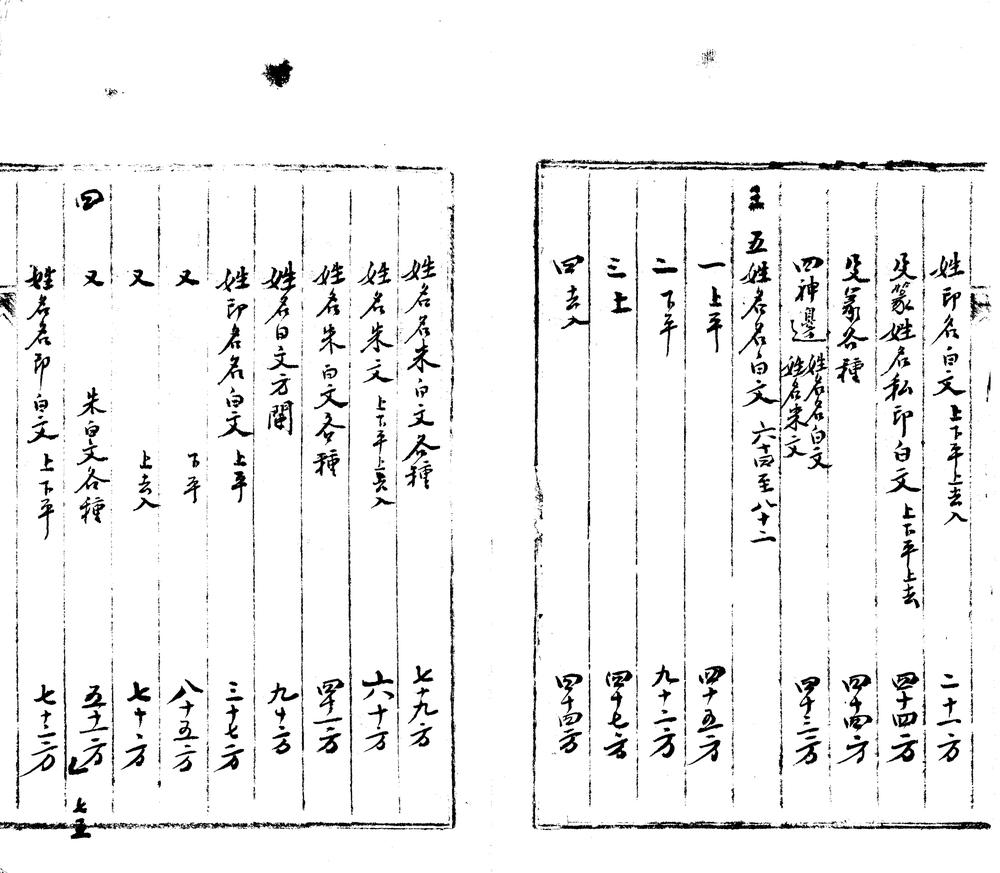 姓印名白文 上下平上去入 二十一方
殳篆姓名私印白文 上下平上去 四十四方
殳篆各種 四十四方
四神邊 姓名名白文 姓名朱文 四十三方
五姓名名白文 六十四至八十二
一上平 四十五方
二下平 九十二方
三上 四十七方
四去入 四十四方
姓名名朱白文各種 七十九方
姓名朱文 上下平上去入 六十方
姓名朱白文各種
姓名白文方闌 九十方
姓印名名白文 上平 三十七方
又 下平 八十五方
又 上去入 七十方
四 又 朱白文各種 五十一方
姓名名印白文 上下平 七十三方